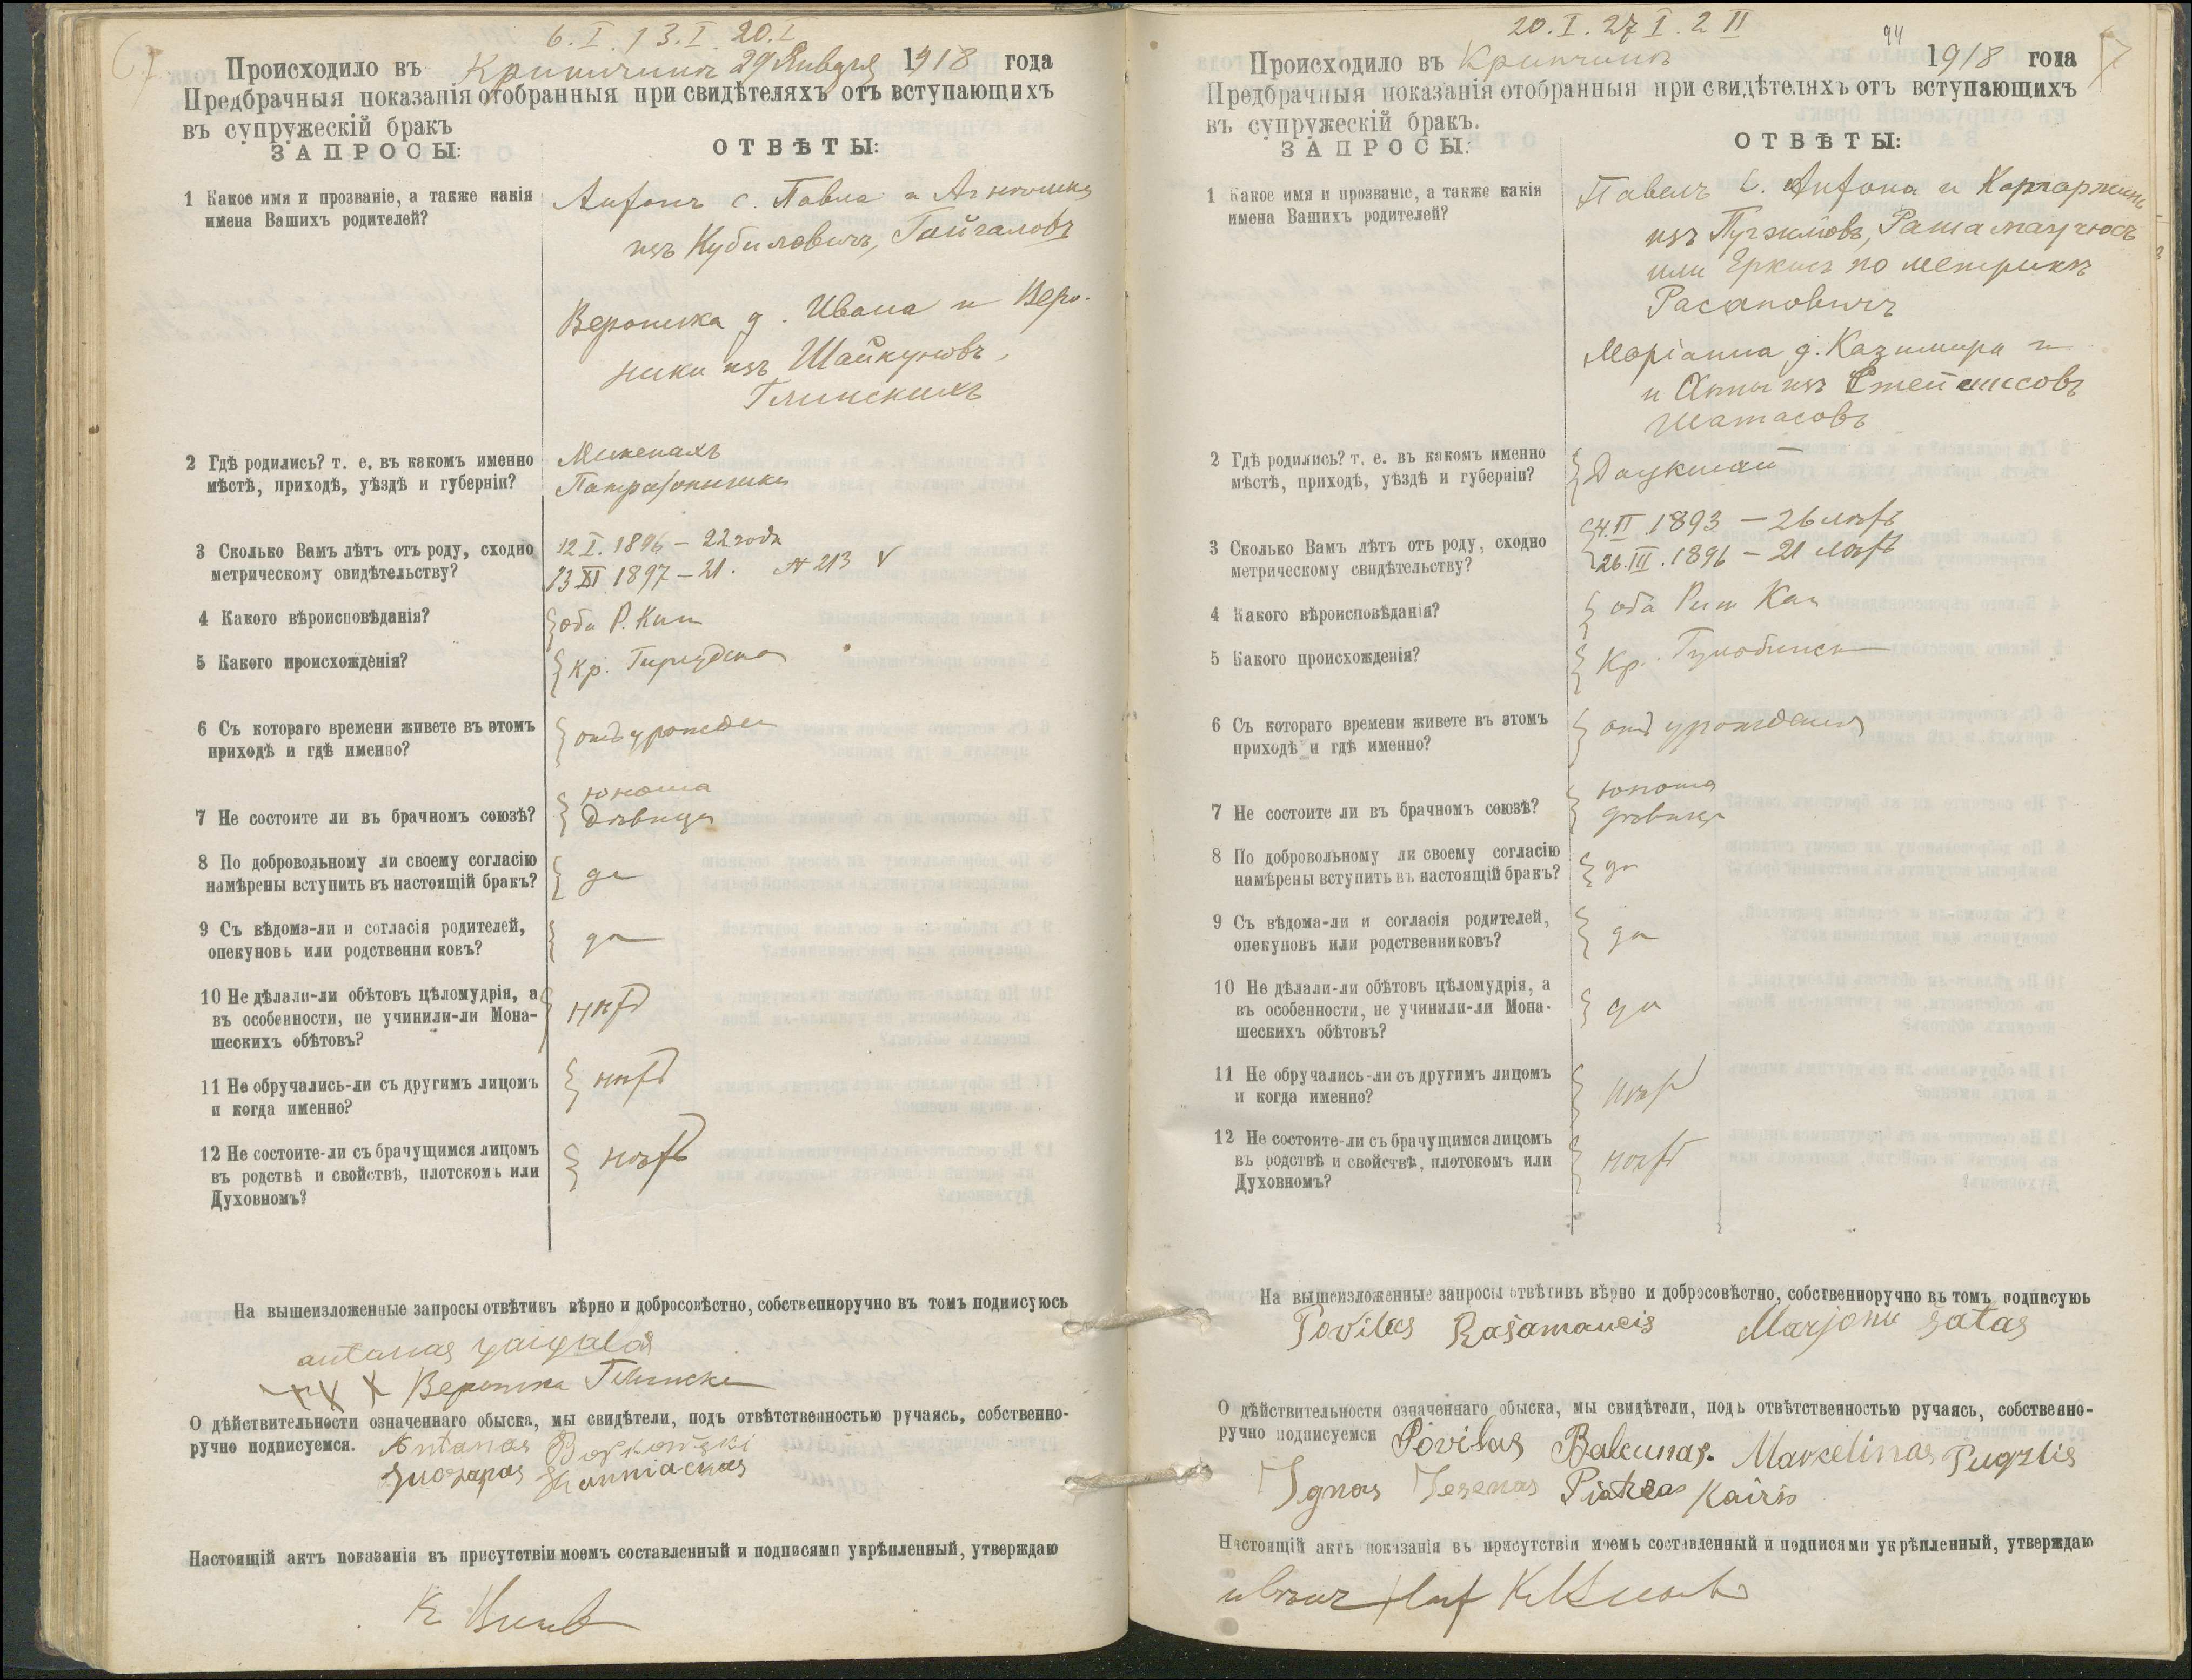 6. I. 13. I. 20. I
Происходило въ Криничинъ 29 Января 1918 года
Предбрачныя показанія отобранныя при свидѣтеляхъ отъ вступающихъ
въ супружескій бракъ
ЗАПРОСЫ:
ОТВѢТЫ:
1 Какое имя и прозваніе, а также какія
имена Вашихъ родителей?
Антонъ с. Павла и
изъ Кубиловичъ, Гайгаловъ
Вероника д. Ивана и Веро-
ники изъ Шайкуновъ,
Глинскихъ
2 Гдѣ родились? т. е. въ какомъ именно
мѣстѣ, приходѣ, уѣздѣ и губерніи?
Микенахъ
3 Сколько Вамъ лѣтъ отъ роду, сходно
метрическому свидѣтельству?
12 I. 1896 – 22 года
13 XI 1897 – 21. № 213 V
4 Какого вѣроисповѣданія?
оба Р. Кат
5 Какого происхожденія?
кр.
6 Съ котораго времени живете въ этомъ
приходѣ и гдѣ именно?
отъ урожден
7 Не состоите ли въ брачномъ союзѣ?
юноша
дѣвица
8 По добровольному ли своему согласію
намѣрены вступить въ настоящій бракъ?
да
9 Съ вѣдома-ли и согласія родителей,
опекуновъ или родственни ковъ?
да
10 Не дѣлали-ли обѣтовъ цѣломудрія, а
въ особенности, не учинили-ли Мона-
шескихъ обѣтовъ?
нѣтъ
11 Не обручались-ли съ другимъ лицомъ
и когда именно?
нѣтъ
12 Не состоите-ли съ брачущимся лицомъ
въ родствѣ и свойствѣ, плотскомъ или
Духовномъ?
нѣтъ
На вышеизложенные запросы отвѣтивъ вѣрно и добросовѣстно, собственноручно въ томъ подписуюсь
antanas gaigalas
XXX Вероника Глинска
О дѣйствительности означеннаго обыска, мы свидѣтели, подъ отвѣтственностью ручаясь, собственно-
ручно подписуемся. Antanas Borkowski
Juozapas
Настоящій актъ показанія въ присутствіи моемъ составленный и подписями укрѣпленный, утверждаю
20. I. 27 I. 2 II
94
Происходило въ Криничинъ 1918 года
Предбрачныя показанія отобранныя при свидѣтеляхъ отъ вступающихъ
въ супружескій бракъ.
ЗАПРОСЫ:
ОТВѢТЫ:
1 Какое имя и прозваніе, а также какія
имена Вашихъ родителей?
Павелъ с. Антона и
изъ Пугжлюовъ, Рашамаучюсъ
или Еркисъ по метрикѣ
Расановичъ
Маріанна д. Казимира и
и Анны изъ Стейнисовъ
Шатасовъ
2 Гдѣ родились? т. е. въ какомъ именно
мѣстѣ, приходѣ, уѣздѣ и губерніи?
Даукшай
3 Сколько Вамъ лѣтъ отъ роду, сходно
метрическому свидѣтельству?
4. II 1893 – 26 лѣтъ
26. III. 1896 – 21 лѣтъ
4 Какого вѣроисповѣданія?
оба Рим Кат
5 Какого происхожденія?
Кр.
6 Съ котораго времени живете въ этомъ
приходѣ и гдѣ именно?
отъ урожденія
7 Не состоите ли въ брачномъ союзѣ?
юноша
дѣвица
8 По добровольному ли своему согласію
намѣрены вступить въ настоящій бракъ?
да
9 Съ вѣдома-ли и согласія родителей,
опекуновъ или родственниковъ?
да
10 Не дѣлали-ли обѣтовъ цѣломудрія, а
въ особенности, не учинили-ли Мона-
шескихъ обѣтовъ?
да
11 Не обручались-ли съ другимъ лицомъ
и когда именно?
нѣтъ
12 Не состоите-ли съ брачущимся лицомъ
въ родствѣ и свойствѣ, плотскомъ или
Духовномъ?
нѣтъ
На вышеизложенные запросы отвѣтивъ вѣрно и добросовѣстно, собственноручно въ томъ подписуюь
Povilas Rašamaucis Marjona Šatas
О дѣйствительности означеннаго обыска, мы свидѣтели, подъ отвѣтственностью ручаясь, собственно-
ручно подписуемся Povilas Balcunas. Marcelinas Pugzlis
Ignas Jesenas Piatras Kairis
Настоящій актъ показанія въ присутствіи моемъ составленный и подписями укрѣпленный, утверждаю